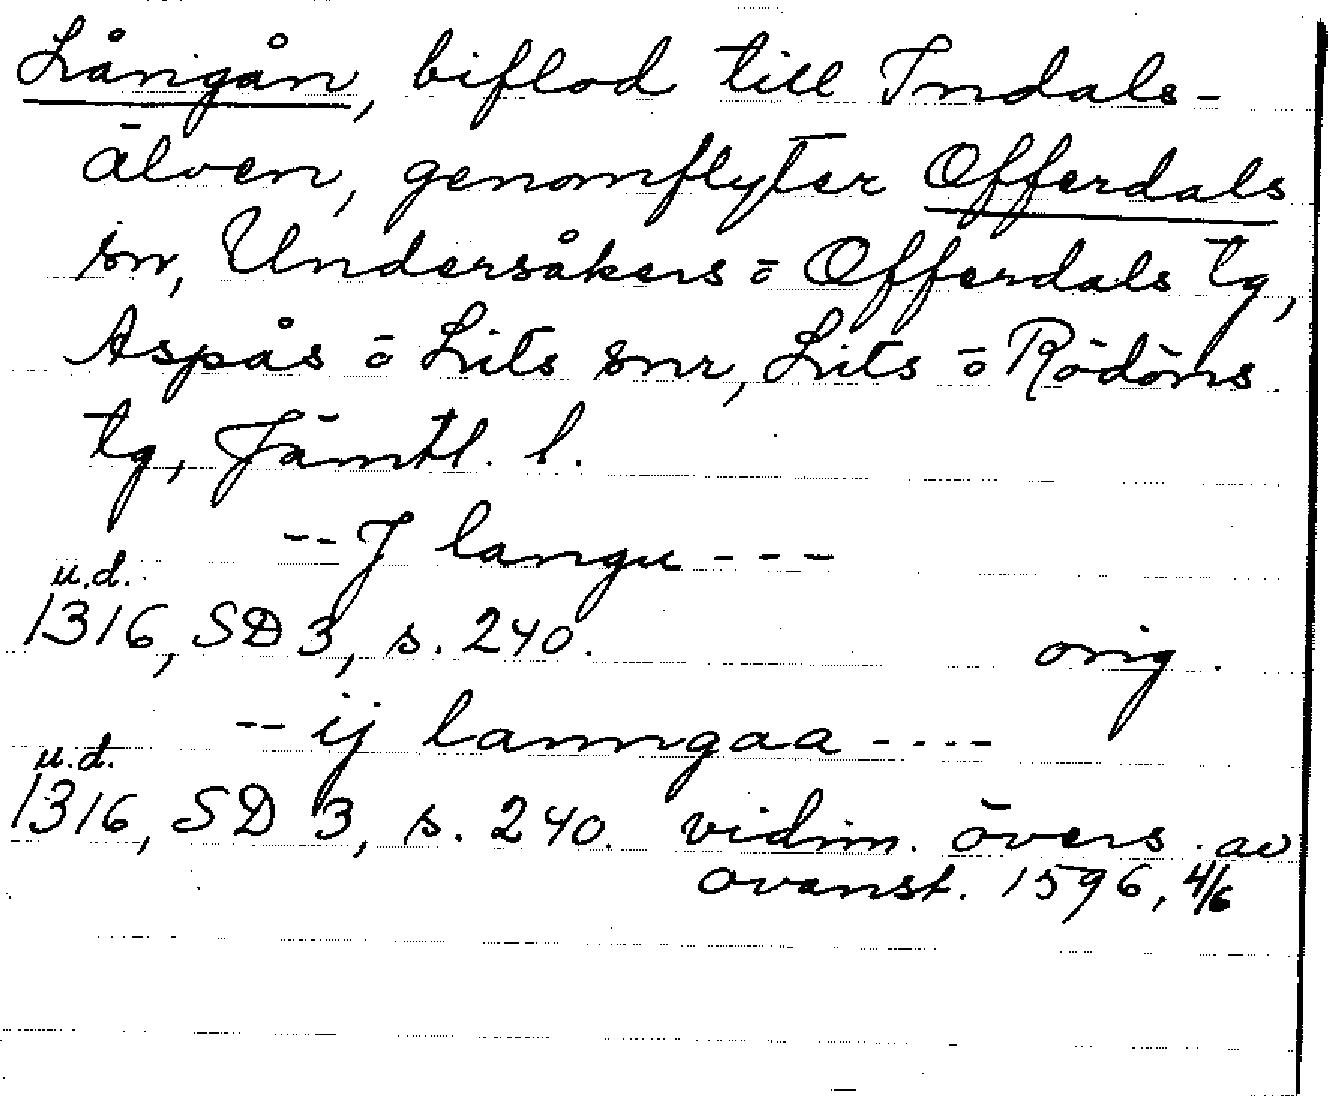 Långån, biflod till Indals-
älven, genomflyter Offerdals
sn, Undersåkers o Offerdals tg,
Aspås o Lits snr, Lits o Rödöns
tg, Jämtl. l.
-- J langu ---
u.d.
1316, SD 3, s. 240. orig.
-- ij lanngaa ----
u.d.
1316, SD 3, s. 240. vidim. övers. av
ovanst. 1596, 4/6